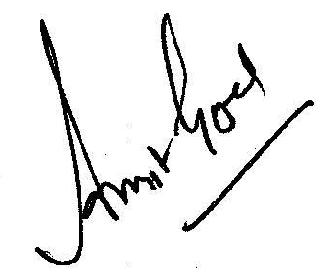 Amit Goel